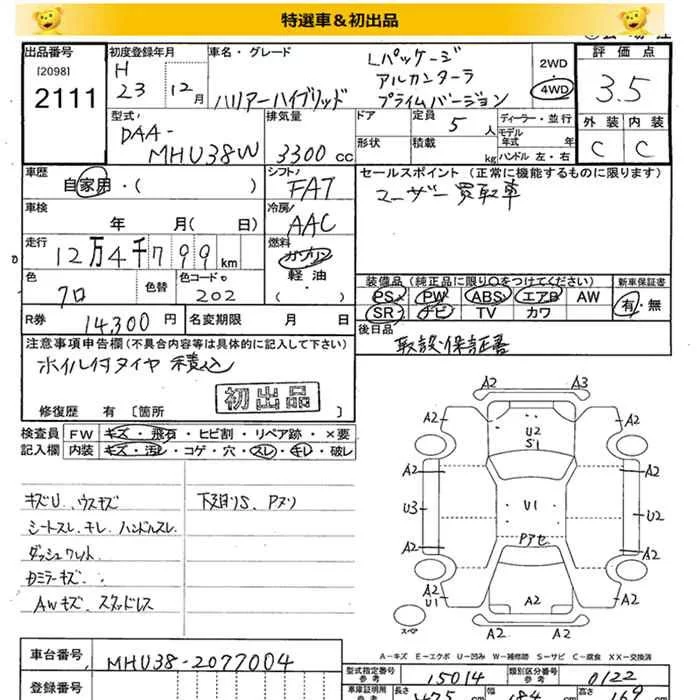 特選車＆初出品
出品番号
[2098]
2111
初度登録年月
H
23 12月
車名・グレード
ハリアーハイブリッド
Lパッケージ
アルカンターラ
プライムバージョン
2WD
4WD
評価点
3.5
外装 内装
C C
型式
DAA-
MHU38W
排気量
3300cc
ドア
形状
定員 5人
積載 kg
ディーラー・並行
モデル年式 年
ハンドル 左・右
車歴
自家用・( )
シフト
FAT
セールスポイント (正常に機能するものに限ります)
ユーザー買取車
車検
年 月( 日)
冷房
AAC
走行
12万4千799km
燃料
ガソリン
軽油
・( )
色
クロ
色替
色コードNo
202
装備品(純正品に限り○をつけてください)
新車保証書
PS PW ABS エアB AW
SR ナビ TV カワ
有・無
R券 14,300円
名変期限 月 日
後日品
取説・保証書
注意事項申告欄(不具合内容等は具体的に記入して下さい)
ホイル付タイヤ積込
初出品
修復歴 有 [箇所 ]
検査員
記入欄
FW キズ・飛石・ヒビ割・リペア跡・×要
内装 キズ・汚レ・コゲ・穴・スレ・キレ・破レ
キズU、ウスキズ
シートスレ、キレ、ハンドルスレ
ダッシュワレ
Dミラーキズ
AWキズ、スタッドレス
下廻りS、Pヌリ
A2 A3
A2 A2
U2
S1
A2 A2
U3 U1 U2
Pアセ
A2 A2
A2 A2
U1 A2 A2
スペア
A−キズ E−エクボ U−凹ミ W−補修跡 S−サビ C−腐食 XX−交換済
車台番号
MHU38-2077004
登録番号
型式指定番号
参考
15014
類別区分番号
参考
0122
車庫証明用
参考
長さ 475
幅 184
高さ 169